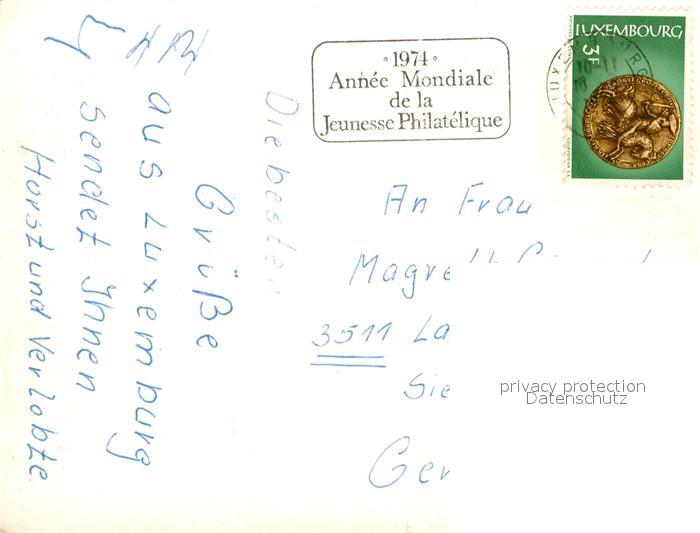 Die besten
Grüße
aus Luxemburg
sendet Ihnen
Horst und Verlobte
· 1974 ·
Année Mondiale
de la
Jeunesse Philatélique
LUXEMBOURG
3F
An Frau
Magre
3511 La
Sie
Ger
privacy protection
Datenschutz